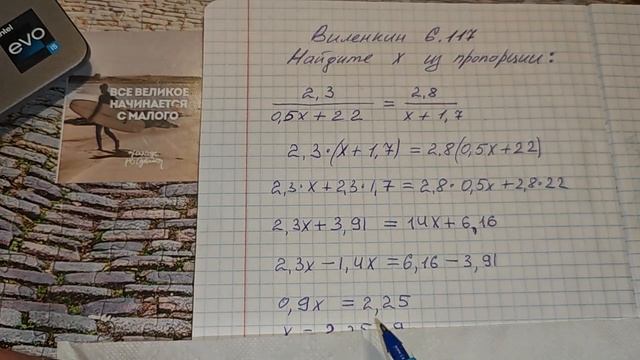 intel
evo
i5
ВСЕ ВЕЛИКОЕ
НАЧИНАЕТСЯ
С МАЛОГО
Виленкин 6.117
Найдите x из пропорции:
2,3 / 0,5x + 22 = 2,8 / x + 1,7
2,3·(x + 1,7) = 2,8(0,5x+22)
2,3·x + 2,3·1,7 = 2,8·0,5x + 2,8·22
2,3x + 3,91 = 14x + 6,16
2,3x – 1,4x = 6,16 – 3,91
0,9x = 2,25